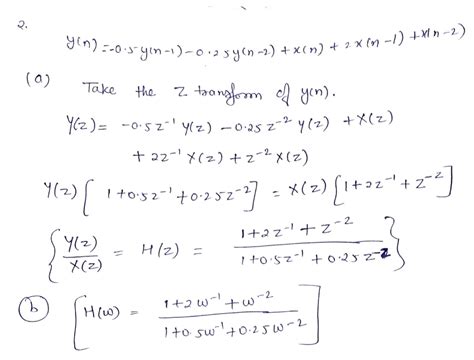 2.
y(n) = -0.5y(n-1) - 0.25y(n-2) + x(n) + 2x(n-1) + x(n-2)
(a) Take the Z transform of y(n).
Y(z) = -0.5z⁻¹ Y(z) - 0.25 z⁻² Y(z) + X(z)
+ 2z⁻¹ X(z) + z⁻² X(z)
Y(z) [ 1+0.5z⁻¹ + 0.25z⁻² ] = X(z) [ 1+2z⁻¹ + z⁻² ]
{ Y(z)/X(z) = H(z) = (1+2z⁻¹ + z⁻²)/(1+0.5z⁻¹ + 0.25z⁻²) }
(b) [ H(ω) = (1+2ω⁻¹ + ω⁻²)/(1+0.5ω⁻¹ + 0.25ω⁻²) ]